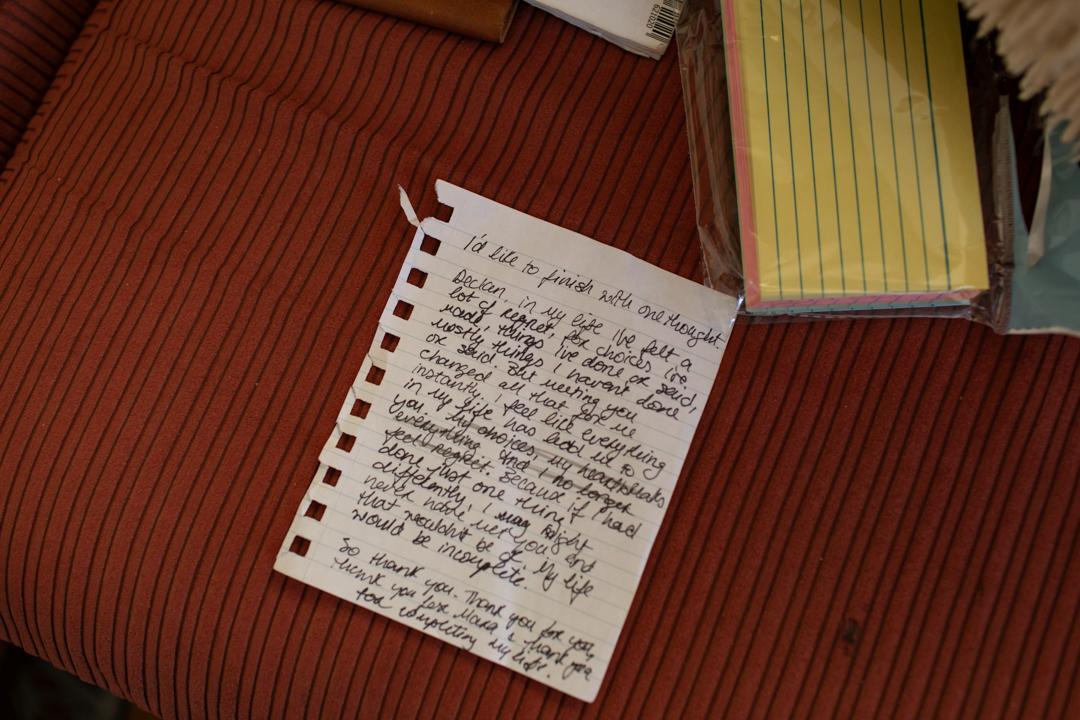 I'd like to finish with one thought.
Declan, in my life I've felt a
lot of regret, for choices I've
made, things I've done or said,
mostly things I havent done
or said. But meeting you
changed all that for me
instantly. I feel like everything
in my life has lead me to
you. My choices, my heartbreaks
everything. And I no longer
feel regret. Because if I had
done just one thing
differently, I might
never have met you and
that wouldn't be ok. My life
would be incomplete.
So thank you. Thank you for you,
thank you for Mara, & thank you
for completing my life.
021020